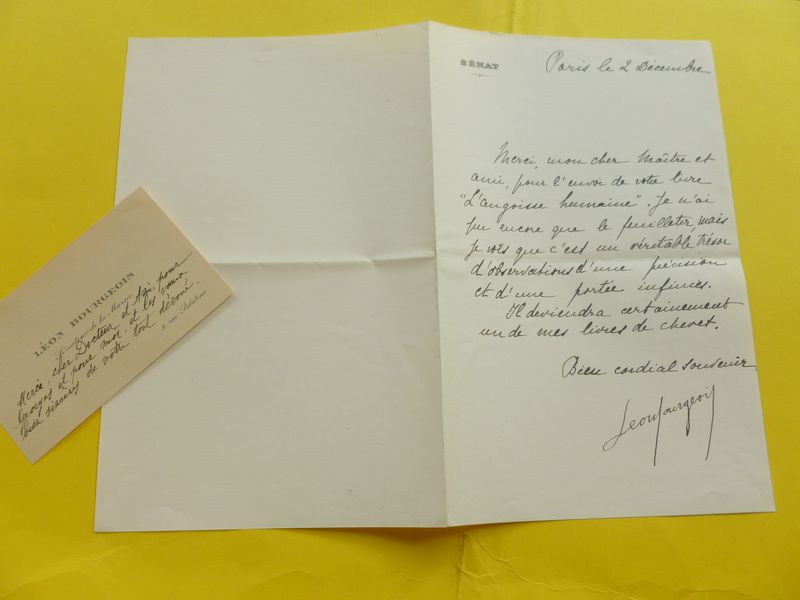 SÉNAT
Paris le 2 Décembre
Merci, mon cher Maître et
ami, pour l'envoi de votre livre
"L'angoisse humaine". Je n'ai
pu encore que le feuilleter, mais
je vois que c'est un véritable trésor
d'observations d'une précision
et d'une portée infinies.
Il deviendra certainement
un de mes livres de chevet.
Bien cordial souvenir
Leon Bourgeois
LÉON BOURGEOIS
Sénateur de la Marne
3, rue Palatine
Merci, cher Docteur et Ami, pour
Georges et pour moi. et les vœux
bien sincères de votre tout dévoué.